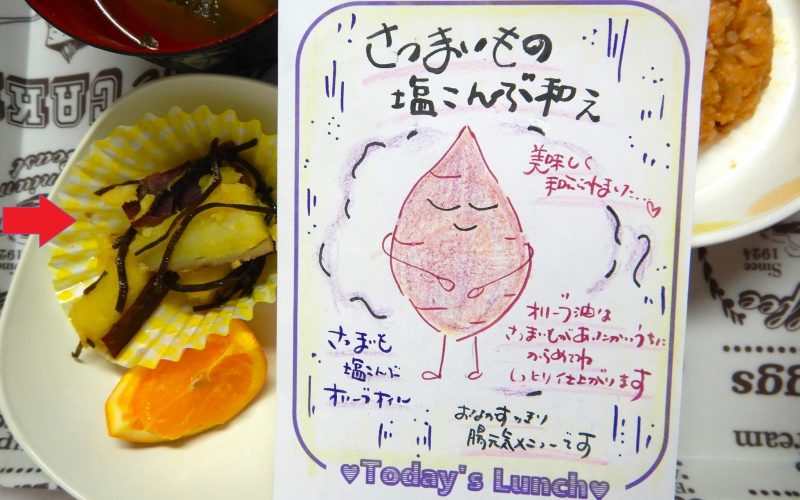 さつまいもの
塩こんぶ和え
美味しく
和ごこれました…
さつまいも
塩こんぶ
オリーブオイル
オリーブ油は
さつまいもがあったかいうちに
からめてね
しっとり仕上がります
おなかすっきり
腸元気メニューです
Today's Lunch
CAKE
Since
1924
Since
1924
Coffee
Eggs
ream